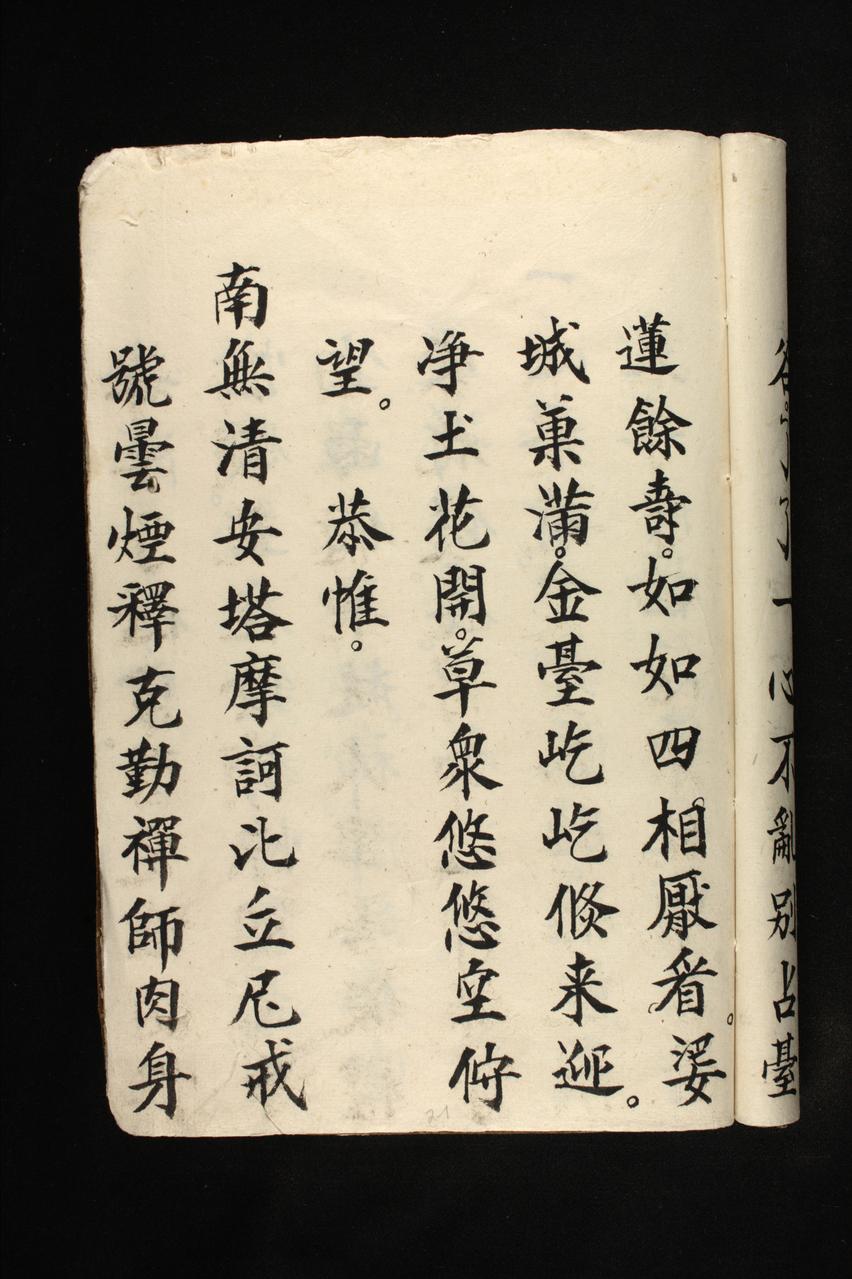 了一心不亂別占臺
蓮餘壽。如如四相厭看娑
城菓滿。金臺屹屹倐来迎。
净土花開。草眾悠悠空佇
望。恭惟。
南無清安塔摩訶比丘尼戒
號曇煙釋克勤禪師肉身